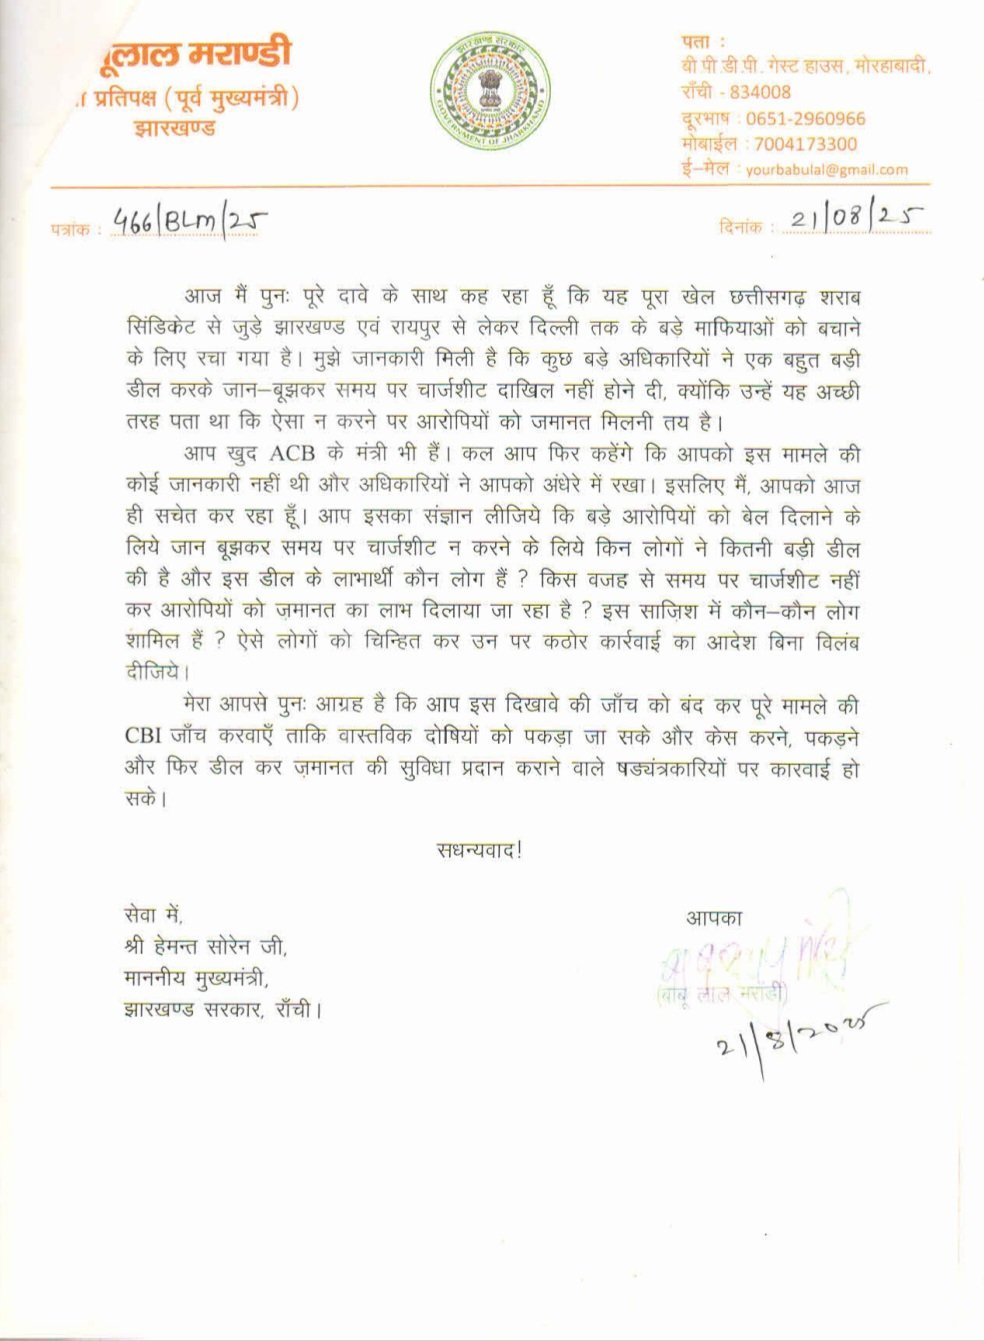 बूलाल मराण्डी
प्रतिपक्ष (पूर्व मुख्यमंत्री)
झारखण्ड
झारखण्ड सरकार
GOVERNMENT OF JHARKHAND
पता :
बी.पी.डी.पी. गेस्ट हाउस, मोरहाबादी,
राँची - 834008
दूरभाष : 0651-2960966
मोबाईल : 7004173300
ई-मेल : yourbabulal@gmail.com
पत्रांक : 466/BLM/25
दिनांक : 21/08/25
आज मैं पुनः पूरे दावे के साथ कह रहा हूँ कि यह पूरा खेल छत्तीसगढ़ शराब
सिंडिकेट से जुड़े झारखण्ड एवं रायपुर से लेकर दिल्ली तक के बड़े माफियाओं को बचाने
के लिए रचा गया है। मुझे जानकारी मिली है कि कुछ बड़े अधिकारियों ने एक बहुत बड़ी
डील करके जान–बूझकर समय पर चार्जशीट दाखिल नहीं होने दी, क्योंकि उन्हें यह अच्छी
तरह पता था कि ऐसा न करने पर आरोपियों को जमानत मिलनी तय है।
आप खुद ACB के मंत्री भी हैं। कल आप फिर कहेंगे कि आपको इस मामले की
कोई जानकारी नहीं थी और अधिकारियों ने आपको अंधेरे में रखा। इसलिए मैं, आपको आज
ही सचेत कर रहा हूँ। आप इसका संज्ञान लीजिये कि बड़े आरोपियों को बेल दिलाने के
लिये जान बूझकर समय पर चार्जशीट न करने के लिये किन लोगों ने कितनी बड़ी डील
की है और इस डील के लाभार्थी कौन लोग हैं ? किस वजह से समय पर चार्जशीट नहीं
कर आरोपियों को ज़मानत का लाभ दिलाया जा रहा है ? इस साज़िश में कौन–कौन लोग
शामिल हैं ? ऐसे लोगों को चिन्हित कर उन पर कठोर कार्रवाई का आदेश बिना विलंब
दीजिये।
मेरा आपसे पुनः आग्रह है कि आप इस दिखावे की जाँच को बंद कर पूरे मामले की
CBI जाँच करवाएँ ताकि वास्तविक दोषियों को पकड़ा जा सके और केस करने, पकड़ने
और फिर डील कर ज़मानत की सुविधा प्रदान कराने वाले षड्यंत्रकारियों पर कारवाई हो
सके।
सधन्यवाद!
सेवा में,
श्री हेमन्त सोरेन जी,
माननीय मुख्यमंत्री,
झारखण्ड सरकार, राँची।
आपका
(बाबू लाल मरांडी)
21/8/2025